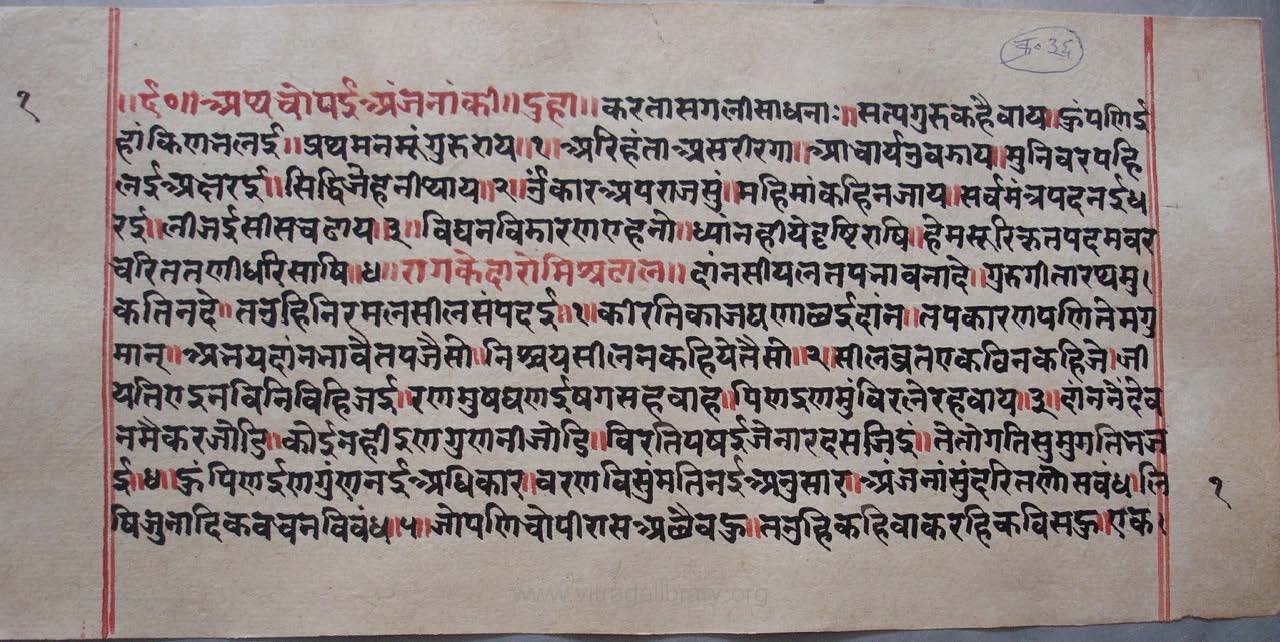 क॰ ३६
१
॥र्द०॥ अथ चोपई अंजनांकी॥ दुहा॥ करतासगलीसाधनाः॥ सत्यगुरुकहैवाय॥ हुंपणिई
हांकिणनलई॥ प्रथमनमूंगुरुराय॥१॥ अरिहंताअसरीरगा॥ आचार्यउवझाय॥ मुनिवरपहि
लईअक्षरई॥ सिद्धिजेहनीथाय॥२॥ ॐकारअपराजसुं॥ महिमांकहिनजाय॥ सर्वमंत्रपदनईधु
रई॥ लीजईसीसचढाय॥३॥ विघनविडारणएहनो॥ ध्यानहीयेदृष्टिराषि॥ हेमसूरिकृतपदमवर
चरिततणीधरिसाषि॥४॥ रागकेदारोमिश्रढाल॥ दांनसीयलतपनावनादे॥ गुरुगीतारथमु।
कतिनदे॥ तउहिनिरमलसीलसंपदई॥१॥ कीरतिकाजघणाछईदांन॥ तपकारणपणितेमगु
मान॥ अनयदांननावैतपजैसो॥ निश्चयसीलनकहियेतैसो॥२॥ सीलव्रतएकविनकहिजे॥ जी
यतिणइनविनिविहिजई॥ रणमुषघणईषगसहवाह॥ पिणइणसुंविरलेरहवाय॥३॥ दांननैदेव
नमैकरजोडि॥ कोईनहीइणगुणनीजोडि॥ विरतिपषईजेनारदसजिई॥ तेतोगतिसुमुगतिनज
ई॥४॥ हुंपिणईणगुंणनईअधिकार॥ वरणविसुंमतिनईअनुसार॥ अंजनांसुंदरितणौसबंध॥ नि
षिजुनादिकवचनविबंध॥५॥ जोपणिचोपीरासअछैबहु॥ तउहिकहिवाकरहिकविसहु॥ एक।
१
www.vitragelibrary.org